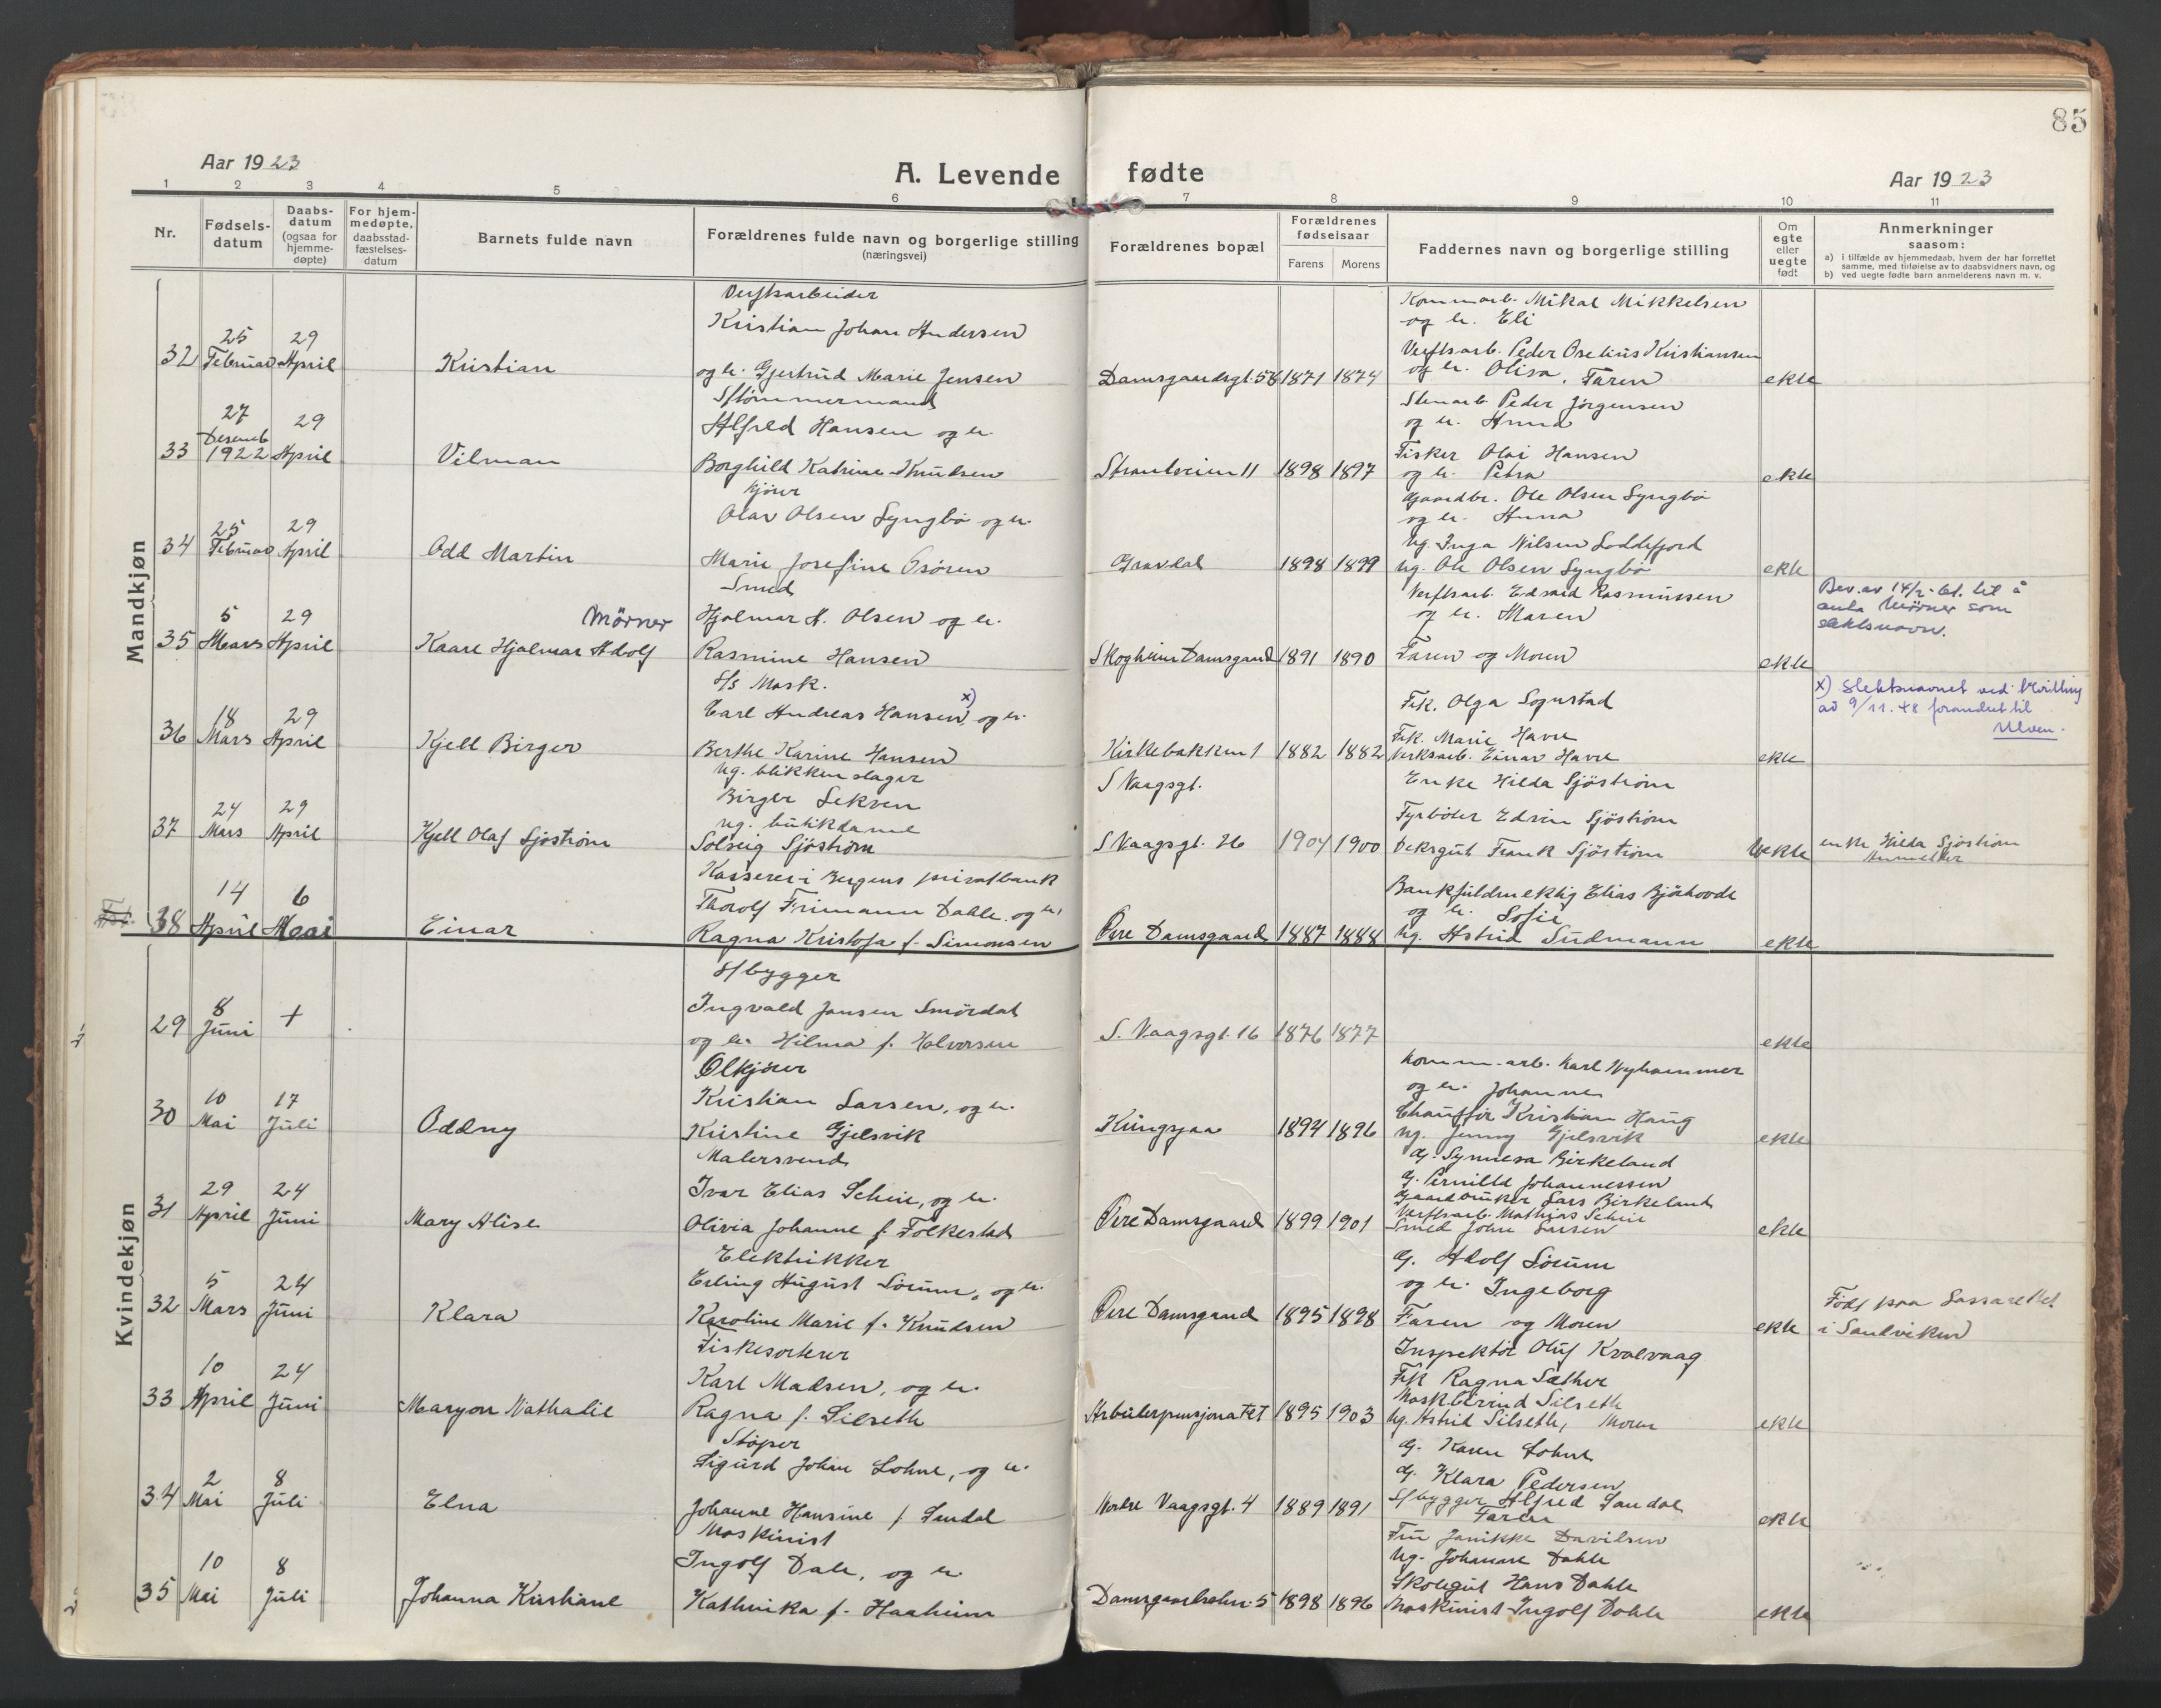 85
Aar 1923
A. Levende fødte
Aar 1923
1 2 3 4 5 6 7 8 9 10 11
Nr.
Fødsels-
datum
Daabs-
datum
(ogsaa for
hjemme-
døpte)
For hjem-
medøpte,
daabsstad-
fæstelses-
datum
Barnets fulde navn
Forældrenes fulde navn og borgerlige stilling
(næringsvei)
Forældrenes bopæl
Forældrenes
fødselsaar
Farens Morens
Faddernes navn og borgerlige stilling
Om
egte
eller
uegte
født
Anmerkninger
saasom:
a) i tilfælde av hjemmedaab, hvem der har forrettet
samme, med tilføielse av to daabsvidners navn, og
b) ved uegte fødte barn anmelderens navn m. v.
Mandkjøn
32
25
Februar
29
April
Kristian
Verftsarbeider
Kristian Johan Andersen
og h. Gjertrud Marie Jensen
Damsgaardsgt. 56
1871 1874
Kommarb. Mikal Mikkelsen
og h. Eli
Verftsarb. Peder Oselius Kristiansen
og h. Olisa, Faren
ekte
33
27
Desemb
1922
29
April
Vilman
S/tømmermand
Alfred Hansen og h.
Borghild Katrine Knudsen
Strandveien 11
1898 1897
Stenarb. Peder Jørgensen
og h. Anna
Fisker Olai Hansen
og h. Petra
ekte
34
25
Februar
29
April
Odd Martin
Kjører
Olav Olsen Lyngbø og h.
Marie Josefine Osøren
Gravdal
1898 1899
Gaardbr. Ole Olsen Lyngbø
og h. Anna
Ug. Inga Nilsen Loddefjord
Ug. Ole Olsen Lyngbø
ekte
35
5
Mars
29
April
Mörner
Kaare Hjalmar Adolf
Smed
Hjalmar A. Olsen og h.
Rasmine Hansen
Skogheim Damsgaard
1891 1890
Verftsarb. Edvard Rasmussen
og h. Maren
Faren og Moren
ekte
Bev. av 14/2- 61. til å
anta Mörner som
slektsnavn.
36
18
Mars
29
April
Kjell Birger
S/s Mask.
Carl Andreas Hansen x) og h.
Berthe Karine Hansen
Kirkebakken 1
1882 1882
Frk. Olga Sognstad
Frk. Marie Havre
Verksarb. Einar Havre
ekte
x) Slektsnavnet ved bevilling
av 9/11. 48 forandret til
Ulven.
37
24
Mars
29
April
Kjell Olaf Sjöström
Ug. blikkenslager
Birger Sekven
Ug. butikdame
Solveig Sjöström
S Vaagsgt.
S Vaagsgt. 26
1904 1900
Enke Hilda Sjöström
Fyrböter Edvin Sjöström
Deksgut Frank Sjöström
Uekte
enke Hilda Sjöström
Anmelder
38
14
April
6
Mai
Einar
Kasserer i Bergens privatbank
Thorolf Frimann Dahle og h.
Ragna Kristofa f. Simonsen
Øvre Damsgaard
1887 1888
Bankfuldmektig Elias Bjørhovde
og h. Sofie
Ug. Astrid Sudmann
ekte
Kvindekjøn
29
8
Juni
+
S/bygger
Ingvald Jansen Smørdal
og h. Hilma f. Halvorsen
S. Vaagsgt. 16
1876 1877
ekte
30
10
Mai
17
Juli
Oddny
Ølkjører
Kristian Larsen, og h.
Kristine Gjelsvik
Kringsjaa
1894 1896
Komm.arb. Karl Nyhammer
og h. Johanne
Chauffør Kristian Haug
Ug. Jenny Gjelsvik
ekte
31
29
April
24
Juni
Mary Alise
Malersvend
Ivar Elias Scheie, og h.
Olivia Johanne f. Folkestad
Øvre Damsgaard
1899 1901
G. Synneva Birkeland
G. Pernille Johannessen
Gaardbruker Lars Birkeland
Verftsarb. Mathias Scheie
Smed John Larsen
ekte
32
5
Mars
24
Juni
Klara
Elektrikker
Erling August Sörum, og h.
Karoline Marie f. Knudsen
Øvre Damsgaard
1895 1898
G. Adolf Sörum
og h. Ingeborg
Faren og Moren
ekte
Født paa Lassarettet
i Sandviken
33
10
April
24
Juni
Maryon Nathalie
Fiskesorterer
Karl Madsen, og h.
Ragna f. Silseth
Arbeiderpensjonatet
1895 1903
Inspektør Oluf Kvalvaag
Frk Ragna Sæther
Mask. Eivind Silseth
Ug. Astrid Silseth, Moren
ekte
34
2
Mai
8
Juli
Elna
Støper
Sigurd Johan Lohne, og h.
Johanne Hansine f. Sandal
Nordre Vaagsgt. 4
1889 1891
G. Karen Lohne
G. Klara Pedersen
S/bygger Alfred Sandal
Faren
ekte
35
10
Mai
8
Juli
Johanna Kristiane
Maskinist
Ingolf Dale, og h.
Kathrika f. Haaheim
1898 1896
Fru Janikke Davidsen
Ug. Johanne Dahle
Skolegut Hans Dahle
Maskinist Ingolf Dahle
ekte